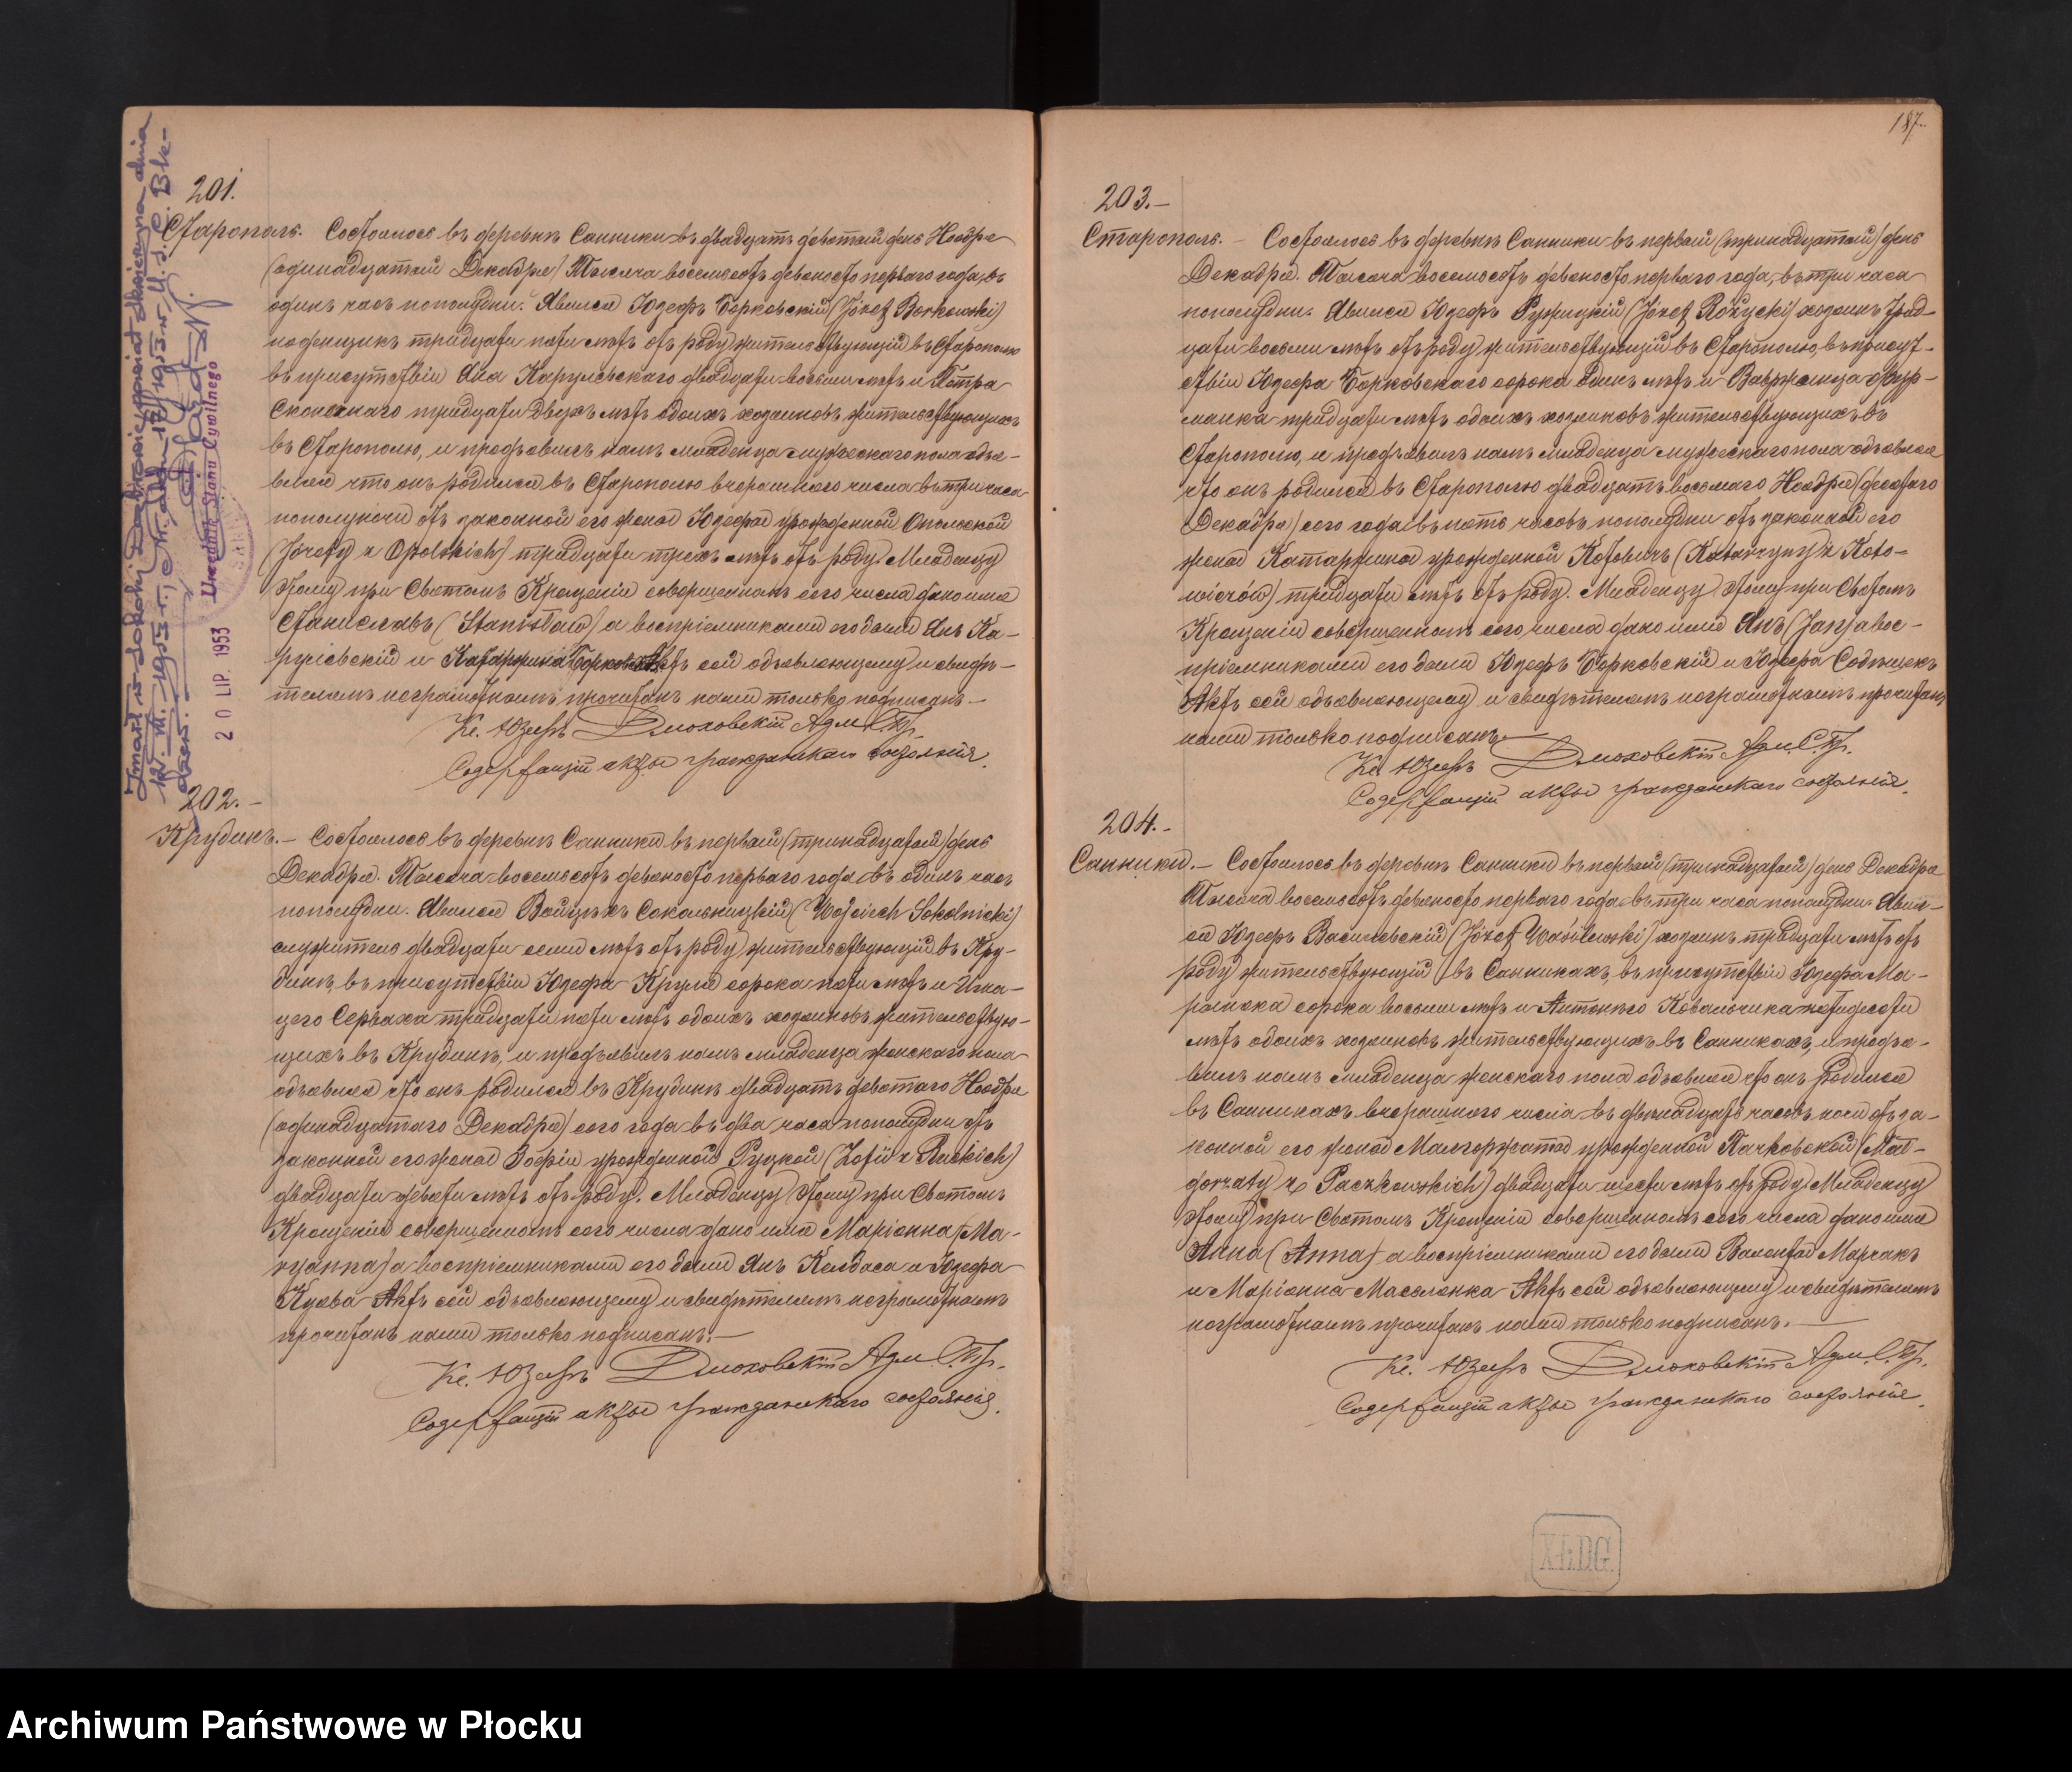 201.
Старополь. Состоялось въ деревнѣ Санники въ двадцать девятый день Ноября
(одинадцатый Декабря) Тысяча восемьсотъ девяносто перваго года, въ
одинъ часъ пополудни. Явился Юзефъ Борковскій (Józef Borkowski)
поденщикъ тридцати пяти лѣтъ отъ роду жительствующій въ Старополю
въ присутствіи Яна двадцати восьми лѣтъ и Петра
тридцати двухъ лѣтъ обоихъ хозяиновъ жительствующихъ
въ Старополю, и предъявилъ намъ младенца мужескаго пола объя-
вляя что онъ родился въ Старополю вчерашняго числа въ три часа
пополуночи отъ законной его жены Юзефы урожденной Опольской
(Józefy z Opolskich) тридцати трехъ лѣтъ отъ роду. Младенцу
этому при Святомъ Крещеніи совершенномъ сего числа дано имя
Станиславъ (Stanisław) а воспріемниками его были Янъ Ка-
и Катаржина Борковска Актъ сей объявляющему и свидѣ-
телямъ неграмотнымъ прочитанъ нами только подписанъ.-
Кс. Юзефъ Адм. С. Пр.
Содержащій акты гражданскаго состоянія.
Zmarł w
12. III. 1953 r.
Urzędnik Stanu Cywilnego
20 LIP. 1953
202.-
Крубинъ.- Состоялось въ деревнѣ Санники въ первый (тринадцатый) день
Декабря. Тысяча восемьсотъ девяносто перваго года въ одинъ часъ
пополудни. Явился Войцѣхъ Сокольницкій (Wojciech Sokolnicki)
служитель двадцати семи лѣтъ отъ роду жительствующій въ Кру-
бинѣ, въ присутствіи Юзефа сорока пяти лѣтъ и Игна-
цего тридцати пяти лѣтъ обоихъ хозяиновъ жительствую-
щихъ въ Крубинѣ, и предъявилъ намъ младенца женскаго пола
объявляя что онъ родился въ Крубинѣ двадцать девятаго Ноября
(одинадцатаго Декабря) сего года въ два часа пополудни отъ
законной его жены Зофіи урожденной Руцкой (Zofii z Ruckich)
двадцати девяти лѣтъ отъ роду. Младенцу этому при Святомъ
Крещеніи совершенномъ сего числа дано имя Маріанна (Ma-
ryanna) а воспріемниками его были Янъ и Юзефа
Актъ сей объявляющему и свидѣтелямъ неграмотнымъ
прочитанъ нами только подписанъ.-
Кс. Юзефъ Адм. С. Пр.
Содержащій акты гражданскаго состоянія.
187.
203.-
Старополь.- Состоялось въ деревнѣ Санники въ первый (тринадцатый) день
Декабря. Тысяча восемьсотъ девяносто перваго года, въ три часа
пополудни. Явился Юзефъ Ружицкій (Józef Różycki) хозяинъ трид-
цати восьми лѣтъ отъ роду жительствующій въ Старополю, въ присут-
ствіи Юзефа Борковскаго сорока одинъ лѣтъ и Вавржинца Фур-
маника тридцати лѣтъ обоихъ хозяиновъ жительствующихъ въ
Старополю, и предъявилъ намъ младенца мужескаго пола объявляя
что онъ родился въ Старополю двадцать восьмаго Ноября (десятаго
Декабря) сего года въ пять часовъ пополудни отъ законной его
жены Катаржины урожденной Котовичъ (Katarzyny z Koto-
wiczów) тридцати лѣтъ отъ роду. Младенцу этому при Святомъ
Крещеніи совершенномъ сего числа дано имя Янъ (Jan) а вос-
пріемниками его были Юзефъ Борковскій и Юзефа
Актъ сей объявляющему и свидѣтелямъ неграмотнымъ прочитанъ
нами только подписанъ.
Кс. Юзефъ Адм. С. Пр.
Содержащій акты гражданскаго состоянія.
204.-
Санники.- Состоялось въ деревнѣ Санники въ первый (тринадцатый) день Декабря
Тысяча восемьсотъ девяносто перваго года въ три часа пополудни. Явил-
ся Юзефъ Василевскій (Józef Wasilewski) хозяинъ тридцати лѣтъ отъ
роду жительствующій въ Санникахъ, въ присутствіи Юзефа Ма-
сорока восьми лѣтъ и Антонего Ковальчика пятидесяти
лѣтъ обоихъ хозяиновъ жительствующихъ въ Санникахъ, и предъя-
вилъ намъ младенца женскаго пола объявляя что онъ родился
въ Санникахъ вчерашняго числа въ двѣнадцать часовъ ночи отъ за-
конной его жены Малгоржаты урожденной Пачковской (Mał-
gorzaty z Paczkowskich) двадцати шести лѣтъ отъ роду. Младенцу
этому при Святомъ Крещеніи совершенномъ сего числа дано имя
Анна (Anna) а воспріемниками его были Валентый Марчакъ
и Маріанна Масолонка Актъ сей объявляющему и свидѣтелямъ
неграмотнымъ прочитанъ нами только подписанъ.-
Кс. Юзефъ Адм. С. Пр.
Содержащій акты гражданскаго состоянія.
Archiwum Państwowe w Płocku